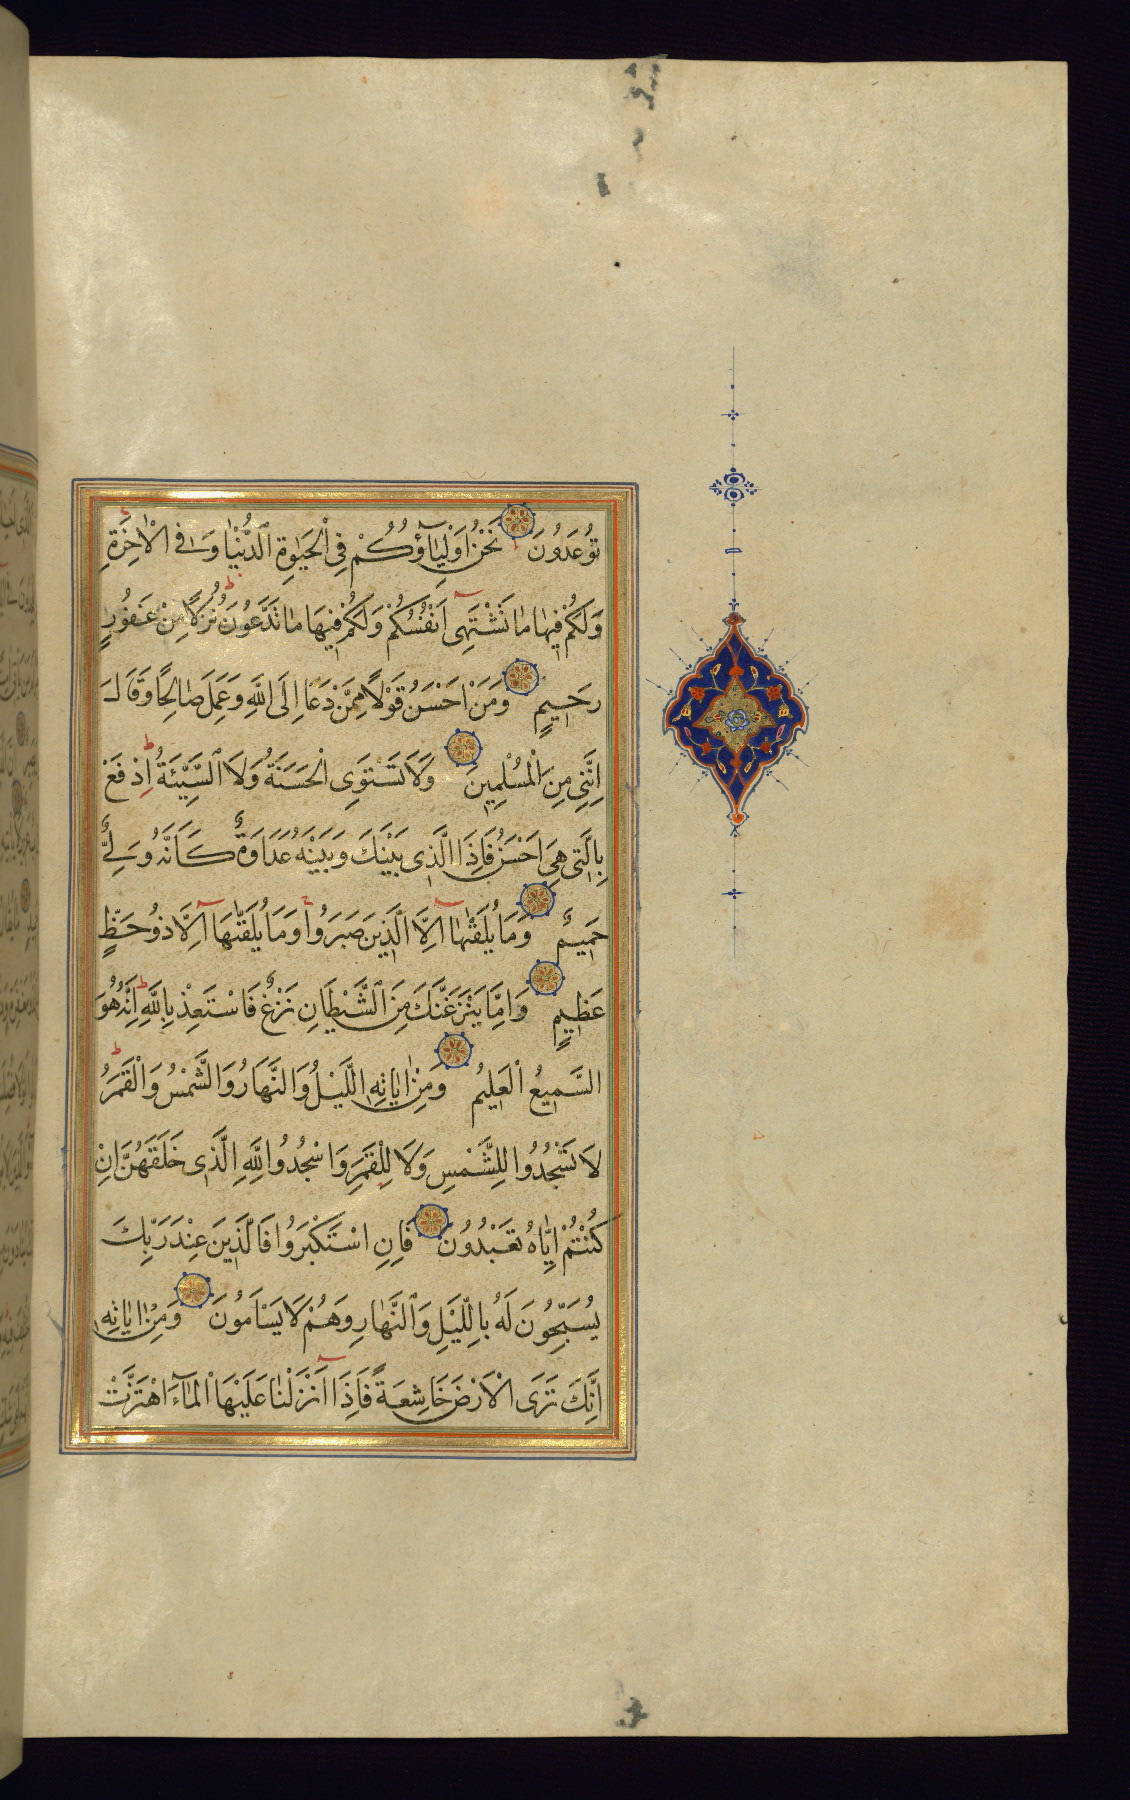 تُوعَدُونَ نَحْنُ اَوْلِيَاۤؤُكُمْ فِي الْحَيٰوةِ الدُّنْيَا وَفِي الْاٰخِرَةِ
وَلَكُمْ فِيهَا مَا تَشْتَهِىۤ اَنْفُسُكُمْ وَلَكُمْ فِيهَا مَا تَدَّعُونَ نُزُلًا مِنْ غَفُورٍ
رَحِيمٍ وَمَنْ اَحْسَنُ قَوْلًا مِمَّنْ دَعَا اِلَى اللّٰهِ وَعَمِلَ صَالِحًا وَقَالَ
اِنَّنِي مِنَ الْمُسْلِمِينَ وَلَا تَسْتَوِى الْحَسَنَةُ وَلَا السَّيِّئَةُ اِدْفَعْ
بِالَّتِى هِىَ اَحْسَنُ فَاِذَا الَّذِى بَيْنَكَ وَبَيْنَهُ عَدَاوَةٌ كَاَنَّهُ وَلِىٌّ
حَمِيمٌ وَمَا يُلَقّٰهَاۤ اِلَّا الَّذِينَ صَبَرُوا وَمَا يُلَقّٰهَاۤ اِلَّا ذُو حَظٍّ
عَظِيمٍ وَاِمَّا يَنْزَغَنَّكَ مِنَ الشَّيْطَانِ نَزْغٌ فَاسْتَعِذْ بِاللّٰهِ اِنَّهُ هُوَ
السَّمِيعُ الْعَلِيمُ وَمِنْ اٰيَاتِهِ اللَّيْلُ وَالنَّهَارُ وَالشَّمْسُ وَالْقَمَرُ
لَا تَسْجُدُوا لِلشَّمْسِ وَلَا لِلْقَمَرِ وَاسْجُدُوا لِلّٰهِ الَّذِى خَلَقَهُنَّ اِنْ
كُنْتُمْ اِيَّاهُ تَعْبُدُونَ فَاِنِ اسْتَكْبَرُوا فَالَّذِينَ عِنْدَ رَبِّكَ
يُسَبِّحُونَ لَهُ بِاللَّيْلِ وَالنَّهَارِ وَهُمْ لَا يَسْاَمُونَ وَمِنْ اٰيَاتِهِ
اَنَّكَ تَرَى الْاَرْضَ خَاشِعَةً فَاِذَاۤ اَنْزَلْنَا عَلَيْهَا الْمَاۤءَ اهْتَزَّتْ